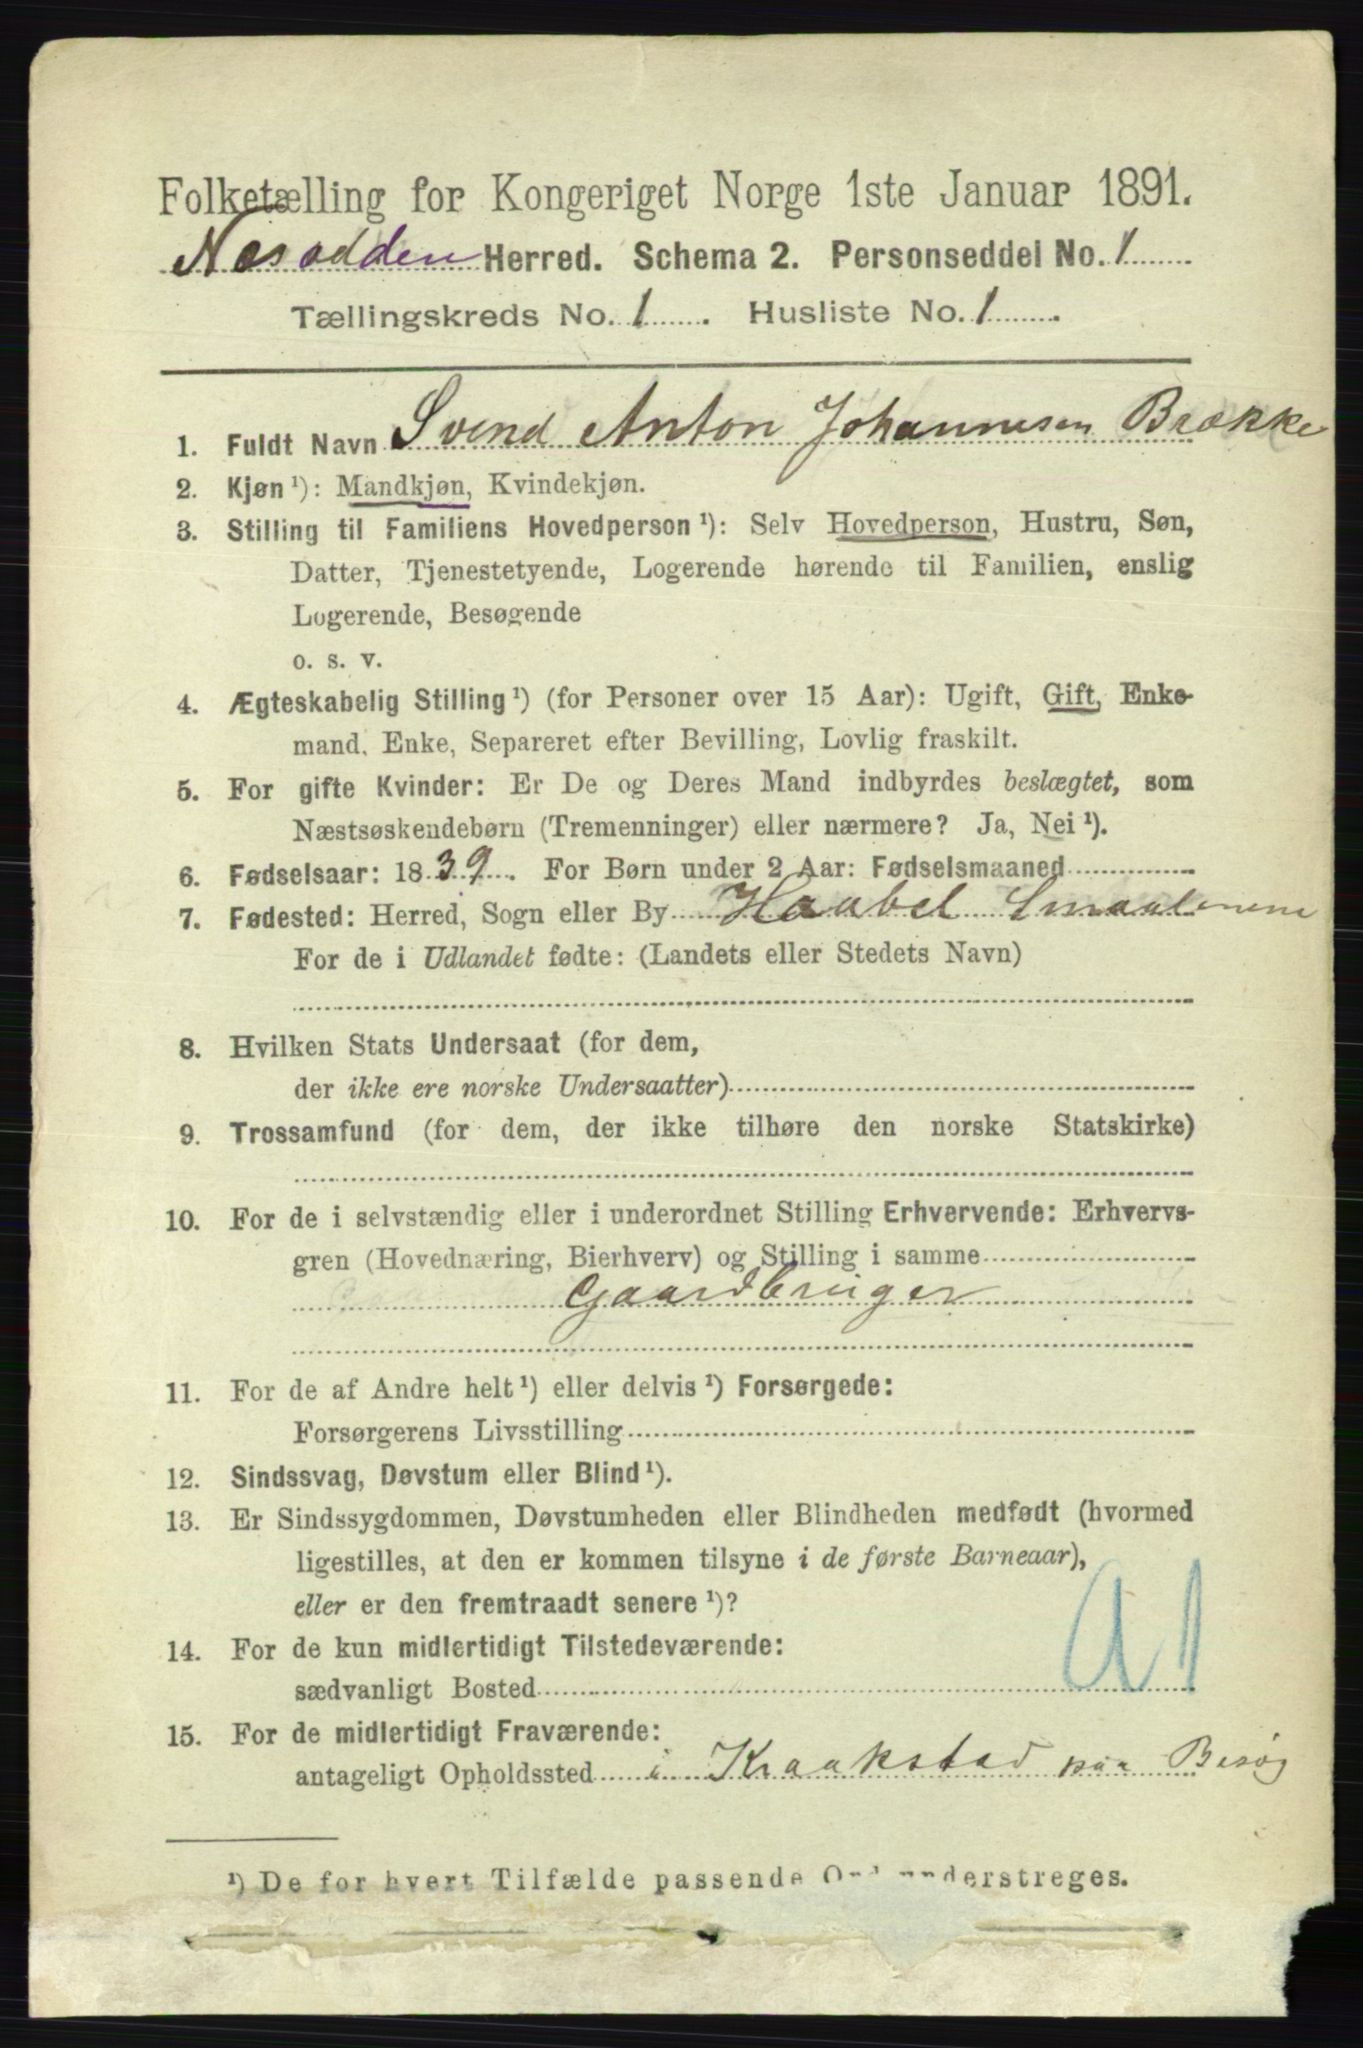 Folketælling for Kongeriget Norge 1ste Januar 1891.
Næsodden Herred. Schema 2. Personseddel No. 1
Tællingskreds No. 1. Husliste No. 1.
1. Fuldt Navn Svend Anton Johannesen Brække
2. Kjøn ¹): Mandkjøn, Kvindekjøn.
3. Stilling til Familiens Hovedperson ¹): Selv Hovedperson, Hustru, Søn,
Datter, Tjenestetyende, Logerende hørende til Familien, enslig
Logerende, Besøgende
o. s. v.
4. Ægteskabelig Stilling ¹) (for Personer over 15 Aar): Ugift, Gift, Enke-
mand, Enke, Separeret efter Bevilling, Lovlig fraskilt.
5. For gifte Kvinder: Er De og Deres Mand indbyrdes beslægtet, som
Næstsøskendebørn (Tremenninger) eller nærmere? Ja, Nei ¹).
6. Fødselsaar: 1839. For Børn under 2 Aar: Fødselsmaaned
7. Fødested: Herred, Sogn eller By Haabel Smaalenene
For de i Udlandet fødte: (Landets eller Stedets Navn)
8. Hvilken Stats Undersaat (for dem,
der ikke ere norske Undersaatter)
9. Trossamfund (for dem, der ikke tilhøre den norske Statskirke)
10. For de i selvstændig eller i underordnet Stilling Erhvervende: Erhvervs-
gren (Hovednæring, Bierhverv) og Stilling i samme
Gaardbruger
11. For de af Andre helt ¹) eller delvis ¹) Forsørgede:
Forsørgerens Livsstilling
12. Sindssvag, Døvstum eller Blind ¹).
13. Er Sindssygdommen, Døvstumheden eller Blindheden medfødt (hvormed
ligestilles, at den er kommen tilsyne i de første Barneaar),
eller er den fremtraadt senere ¹)?
14. For de kun midlertidigt Tilstedeværende:
sædvanligt Bosted
A1
15. For de midlertidigt Fraværende:
antageligt Opholdssted i Kraakstad paa Besøg
¹) De for hvert Tilfælde passende Ord understreges.